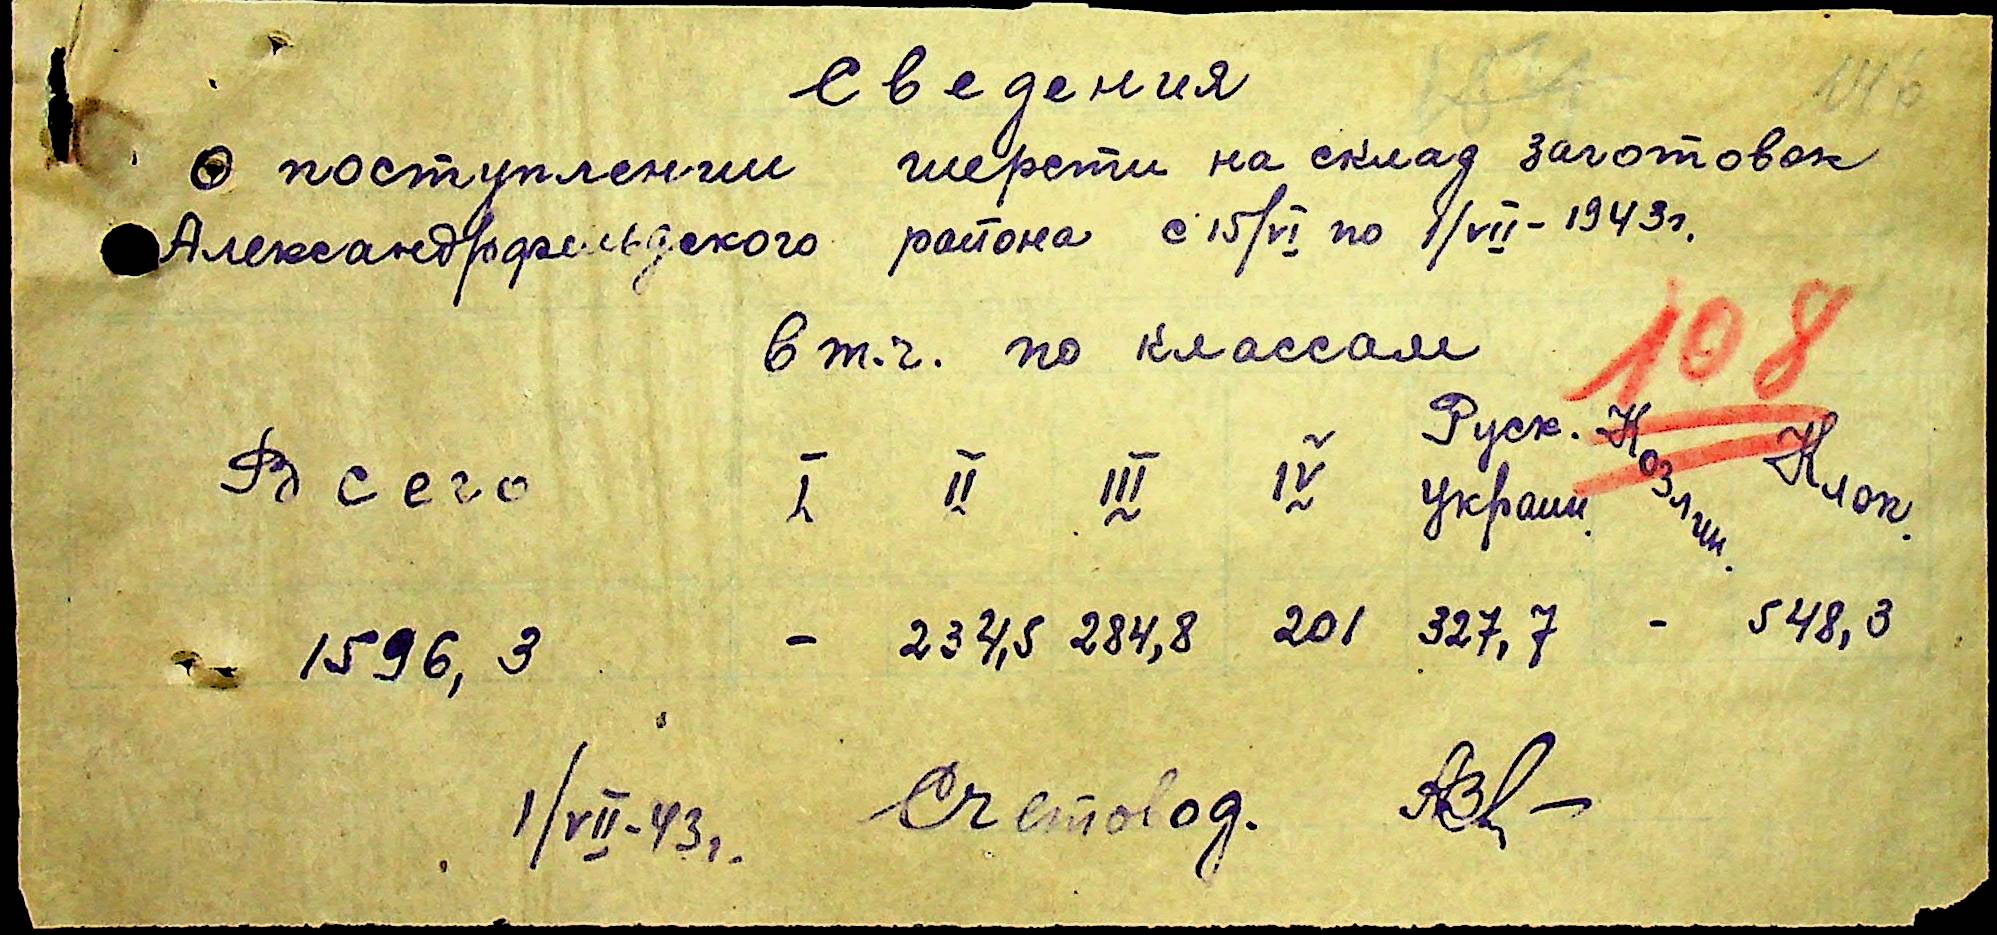 Сведения
о поступлении шерсти на склад заготовок
Александрфельдского района с 15/VI по 1/VII-1943г.
в т.ч. по классам
108
Всего I II III IV Руск. украин. Козлин. Клок.
1596,3 - 234,5 284,8 201 327,7 - 548,3
1/VII-43г. Счетовод.